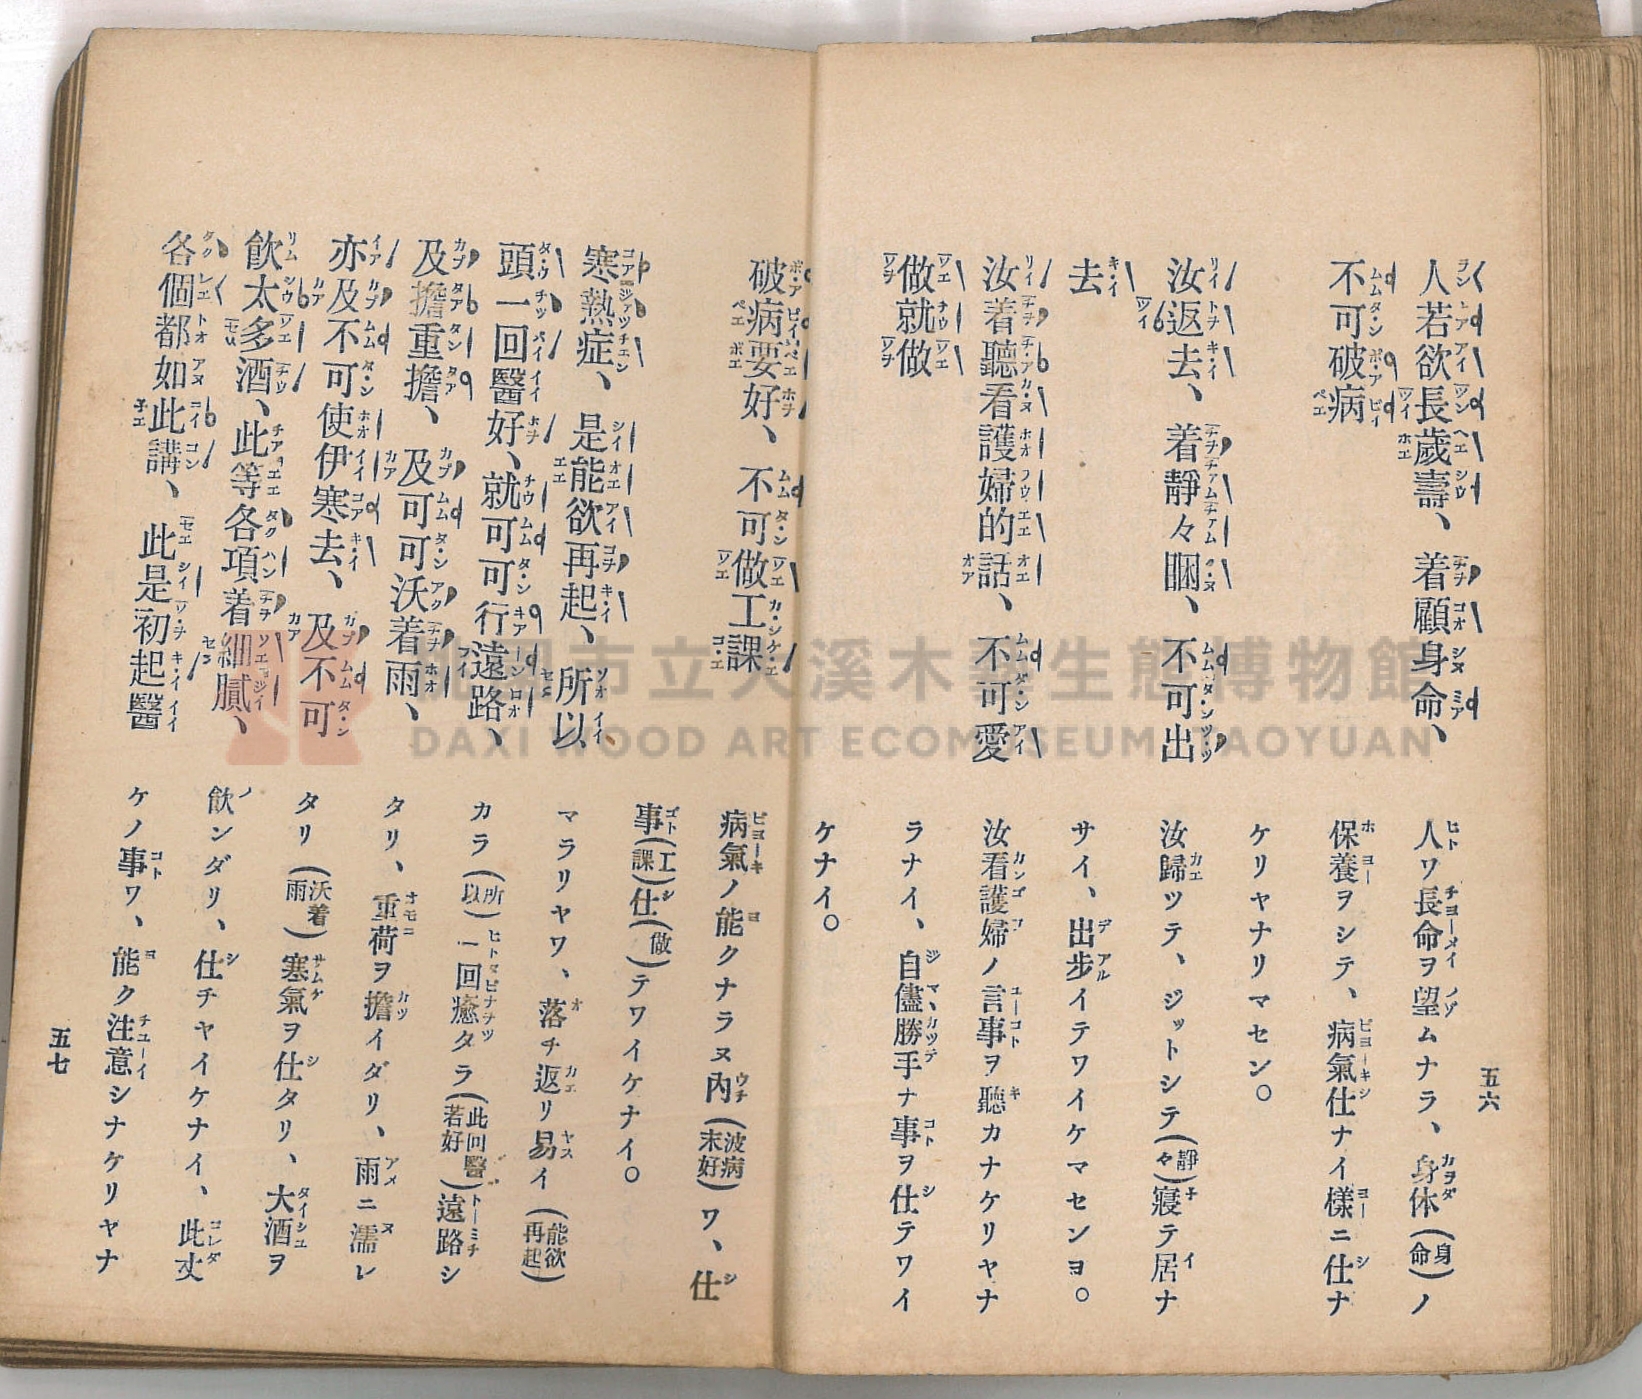 五六
人若欲長歲壽、着顧身命、
不可破病
汝返去、着靜々睏、不可出
去
汝着聽看護婦的話、不可愛
做就做
人ワ長命ヲ望ムナラ、身体(身命)ノ
保養ヲシテ、病氣仕ナイ樣ニ仕ナ
ケリヤナリマセン。
汝歸ツテ、ジットシテ(靜々)寢テ居ナ
サイ、出步イテワイケマセンヨ。
汝看護婦ノ言事ヲ聽カナケリヤナ
ラナイ、自儘勝手ナ事ヲ仕テワイ
ケナイ。
破病要好、不可做工課
寒熱症、是能欲再起、所以
頭一回醫好、就可可行遠路、
及擔重擔、及可可沃着雨、
亦及不可使伊寒去、及不可
飮太多酒、此等各項着細膩、
各個都如此講、此是初起醫
病氣ノ能クナラヌ內(波病末好)ワ、仕
事(工課)仕(做)テワイケナイ。
マラリヤワ、落チ返リ易イ(能欲再起)
カラ(所以)一回癒タラ(此回醫若好)遠路シ
タリ、重荷ヲ擔イダリ、雨ニ濡レ
タリ(沃着雨)寒氣ヲ仕タリ、大酒ヲ
飮ンダリ、仕チヤイケナイ、此丈
ケノ事ワ、能ク注意シナケリヤナ
五七
桃園市立大溪木藝生態博物館
DAXI WOOD ART ECOMUSEUM TAOYUAN